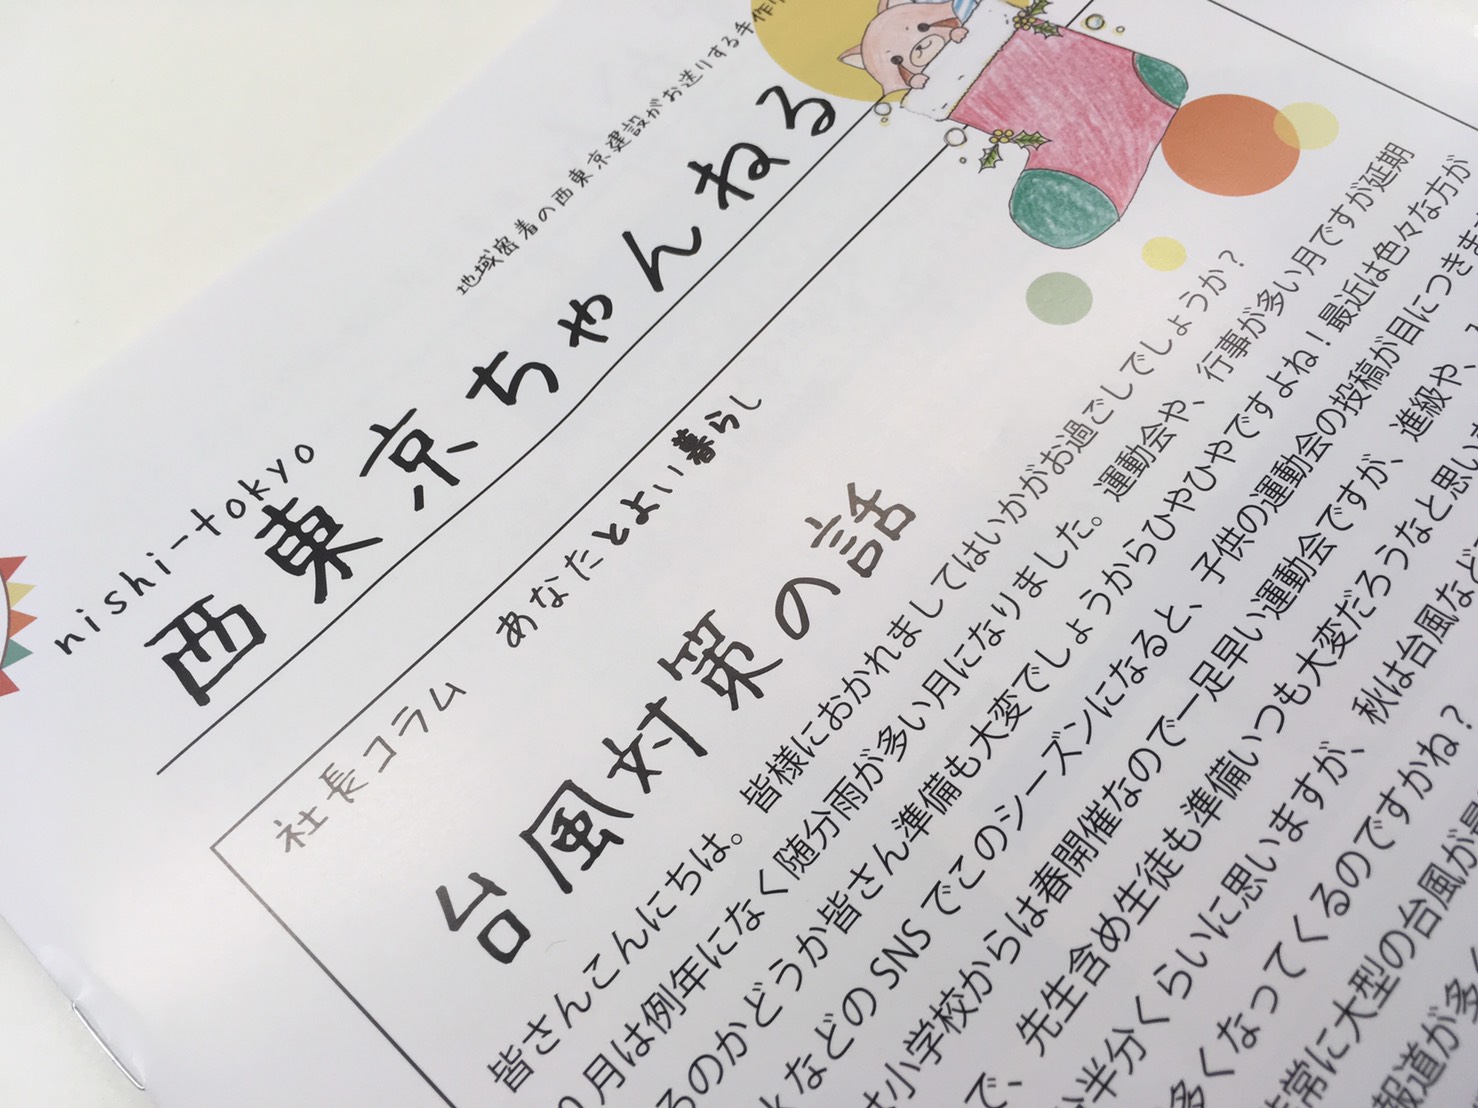 地域密着の西東京建設がお送りする手作り
nishi-tokyo
西東京ちゃんねる
社長コラム
あなたとよい暮らし
台風対策の話
皆さんこんにちは。皆様におかれましてはいかがお過ごしでしょうか?
月は例年になく随分雨が多い月になりました。運動会や、行事が多い月ですが延期
るのかどうか皆さん準備も大変でしょうからひやひやですよね!最近は色々な方が
などのSNSでこのシーズンになると、子供の運動会の投稿が目につきます
小学校からは春開催なので一足早い運動会ですが、進級や、
で、先生含め生徒も準備いつも大変だろうなと思い
半分くらいに思いますが、秋は台風など
多くなってくるのですかね?
常に大型の台風が
報道が多く